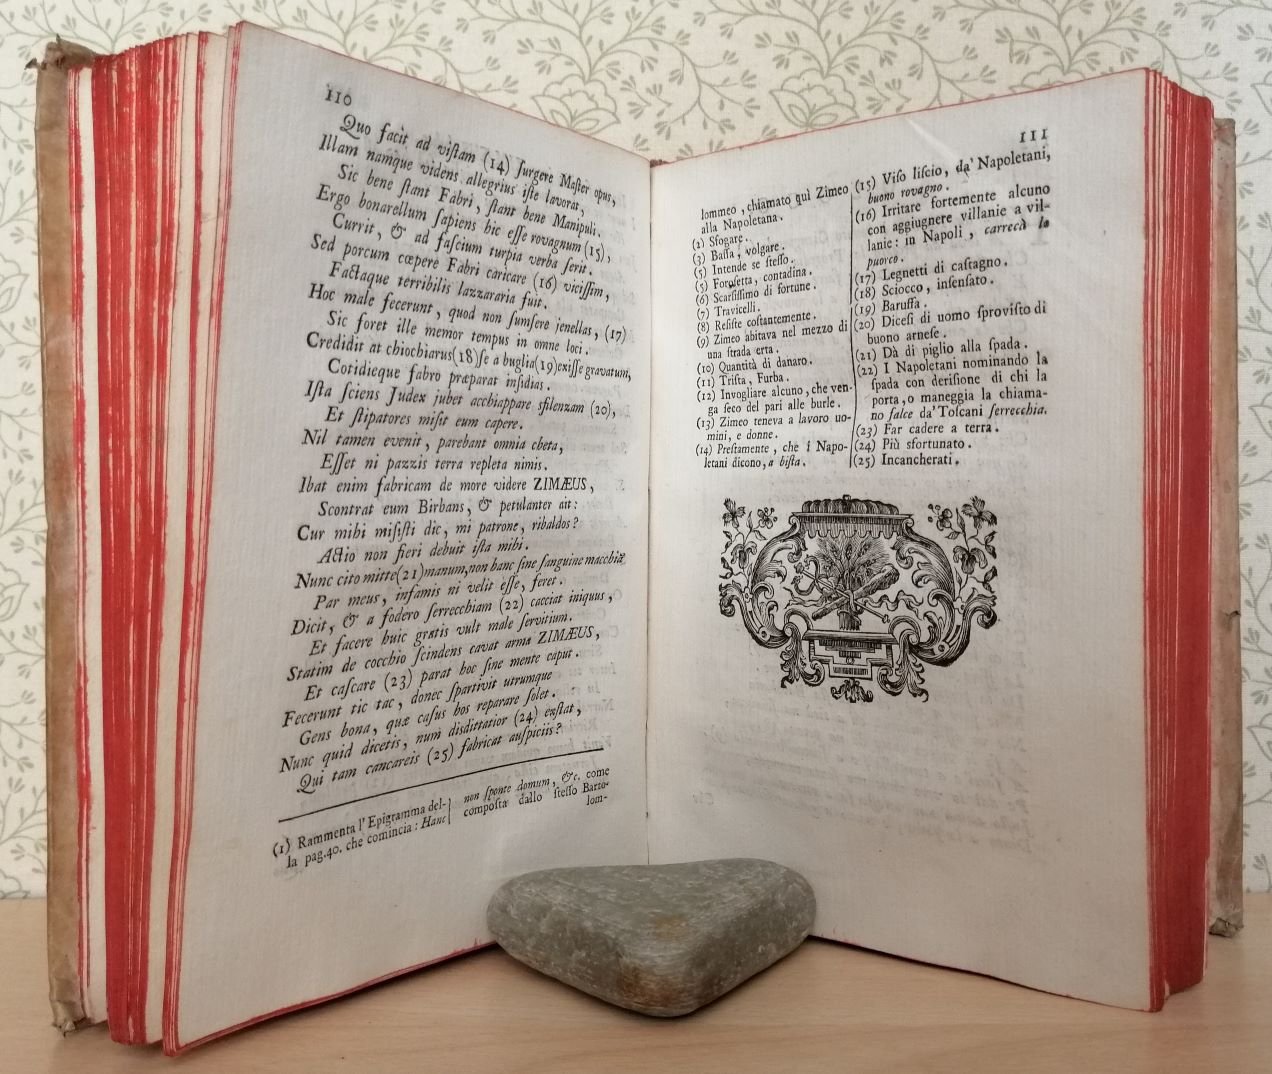 110
Quo facit ad viſtam (14) ſurgere Maſter opus,
Illam namque videns allegrius iſte lavorat,
Sic bene ſtant Fabri, ſtant bene Manipuli.
Ergo bonarellum ſapiens hic eſſe rovagnum (15),
Currit, & ad faſcium turpia verba ferit.
Sed porcum cœpere Fabri caricare (16) viciſſim,
Factaque terribilis lazzararia fuit.
Hoc male fecerunt, quod non ſumſere jenellas, (17)
Sic foret ille memor tempus in omne loci.
Credidit at chiochiarus(18)ſe a buglia(19)exiſſe gravatum,
Cotidieque fabro præparat inſidias.
Iſta ſciens Judex jubet acchiappare sfilenzam (20),
Et ſtipatores miſit eum capere.
Nil tamen evenit, parebant omnia cheta,
Eſſet ni pazzis terra repleta nimis.
Ibat enim fabricam de more videre ZIMÆUS,
Scontrat eum Birbans, & petulanter ait:
Cur mihi miſiſti dic, mi patrone, ribaldos?
Actio non fieri debuit iſta mihi.
Nunc cito mitte(21)manum,non hanc ſine ſanguine macchiā
Par meus, infamis ni velit eſſe, feret.
Dicit, & a fodero ſerrecchiam (22) cacciat iniquus,
Et facere huic gratis vult male ſervitium.
Statim de cocchio ſcindens cavat arma ZIMÆUS,
Et caſcare (23) parat hoc ſine mente caput.
Fecerunt tic tac, donec ſpartivit utrumque
Gens bona, quæ caſus hos reparare ſolet.
Nunc quid dicetis, num disdittatior (24) exſtat,
Qui tam cancareis (25) fabricat auſpiciis?
(1) Rammenta l'Epigramma del-
la pag.40. che comincia: Hanc
non ſponte domum, &c. come
compoſta dallo ſteſſo Barto-
lom-
111
lommeo, chiamato quì Zimeo
alla Napoletana.
(2) Sfogare.
(3) Baſſa, volgare.
(5) Intende se ſteſſo.
(5) Foroſetta, contadina.
(6) Scarſiſſimo di fortune.
(7) Travicelli.
(8) Reſiſte coſtantemente.
(9) Zimeo abitava nel mezzo di
una ſtrada erta.
(10) Quantità di danaro.
(11) Triſta, Furba.
(12) Invogliare alcuno, che ven-
ga ſeco del pari alle burle.
(13) Zimeo teneva a lavoro uo-
mini, e donne.
(14) Preſtamente, che i Napo-
letani dicono, a biſta.
(15) Viſo liſcio, da' Napoletani,
buono rovagno.
(16) Irritare fortemente alcuno
con aggiugnere villanie a vil-
lanie: in Napoli, carrecà lo
puorco.
(17) Legnetti di caſtagno.
(18) Sciocco, inſenſato.
(19) Baruffa.
(20) Diceſi di uomo ſproviſto di
buono arneſe.
(21) Dà di piglio alla ſpada.
(22) I Napoletani nominando la
ſpada con deriſione di chi la
porta, o maneggia la chiama-
no ſalce da'Toſcani ſerrecchia.
(23) Far cadere a terra.
(24) Più sfortunato.
(25) Incancherati.